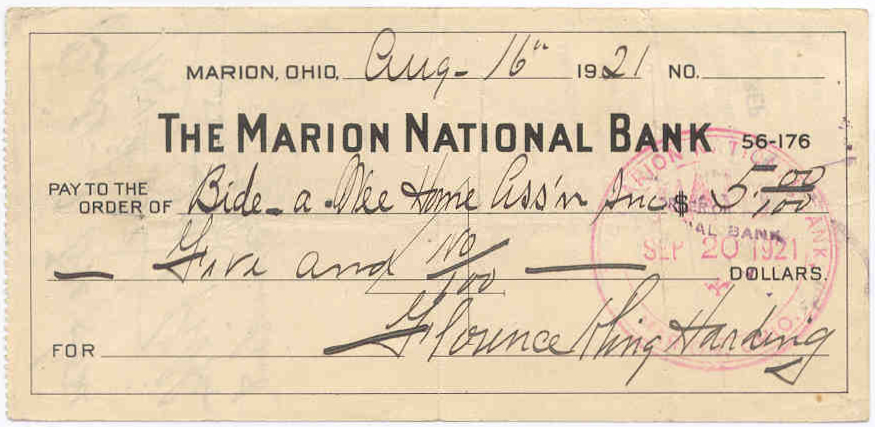 MARION, OHIO, Aug- 16th 1921 NO.
THE MARION NATIONAL BANK 56-176
PAY TO THE
ORDER OF Bide-a-Wee Home Ass'n Inc $ 5.00/100
Five and No/100 DOLLARS.
FOR Florence Kling Harding
MARION NATIONAL BANK
NAL BANK
SEP 20 1921